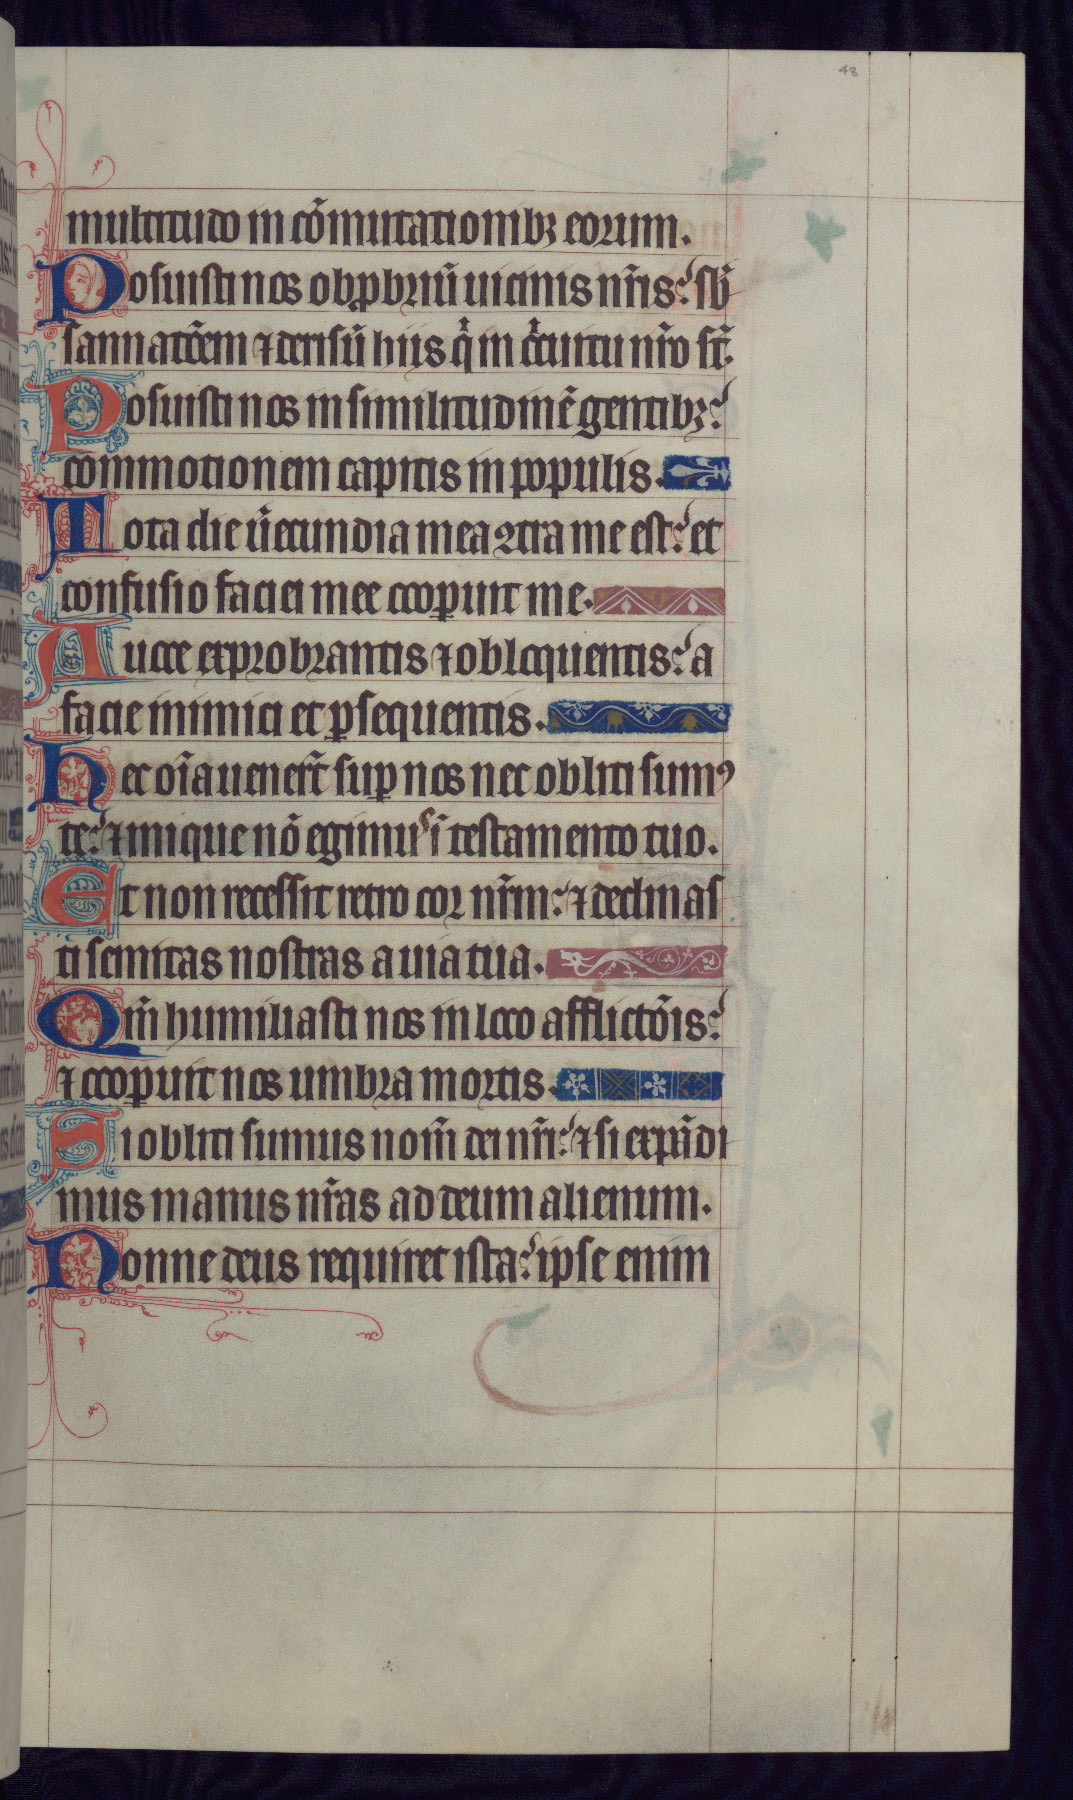 48
multitudo in cõmutationibꝫ eorum.
Posuisti nos obꝓbriũ uicinis nr̃is: sb̃
sannatõem ⁊ derisũ hiis q̇ in c̓cuitu nr̃o st̃.
Posuisti nos in similitudinẽ gentibꝫ:
commotionem capitis in populis.
Tota die ũecundia mea ꝯtra me est: et
confusio faciei mee coopuit me.
A uoce exprobrantis ⁊ obloquentis: a
facie inimici et ꝑsequentis.
Hec oĩa uenerũt suꝑ nos nec obliti sumꝰ
te: ⁊ inique nõ egimus ĩ testamento tuo.
Et non recessit retro cor nr̃m: ⁊ declinas
ti semitas nostras a uia tua.
Qm̃ humiliasti nos in loco afflictõis:
⁊ cooꝑuit nos umbra mortis.
Si obliti sumus nom̃ dei nr̃i: ⁊ si expãdi
mus manus nr̃as ad deum alienum.
Nonne deus requiret ista: ipse enim